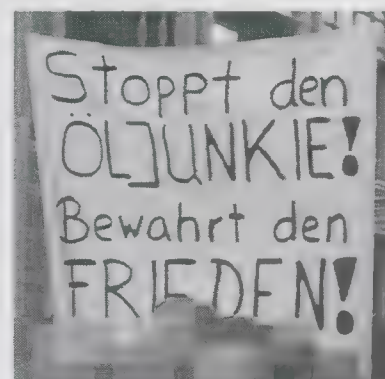 Stoppt den
ÖLJUNKIE!
Bewahrt den
FRIEDEN!